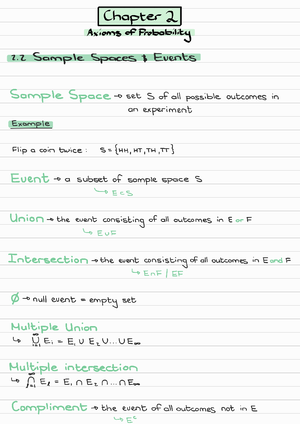 Chapter 2
Axioms of Probability
2.2 Sample Spaces & Events
Sample Space → set S of all possible outcomes in
an experiment
Example
Flip a coin twice : S = {HH, HT, TH, TT}
Event → a subset of sample space S
↳ E ⊂ S
Union → the event consisting of all outcomes in E or F
↳ E ∪ F
Intersection → the event consisting of all outcomes in E and F
↳ E ∩ F / EF
Ø → null event = empty set
Multiple Union
↳ ∞⋃i=1 Ei = E₁ ∪ E₂ ∪ ... ∪ E∞
Multiple intersection
↳ ∞⋂i=1 Ei = E₁ ∩ E₂ ∩ ... ∩ E∞
Compliment → the event of all outcomes not in E
↳ Eᶜ